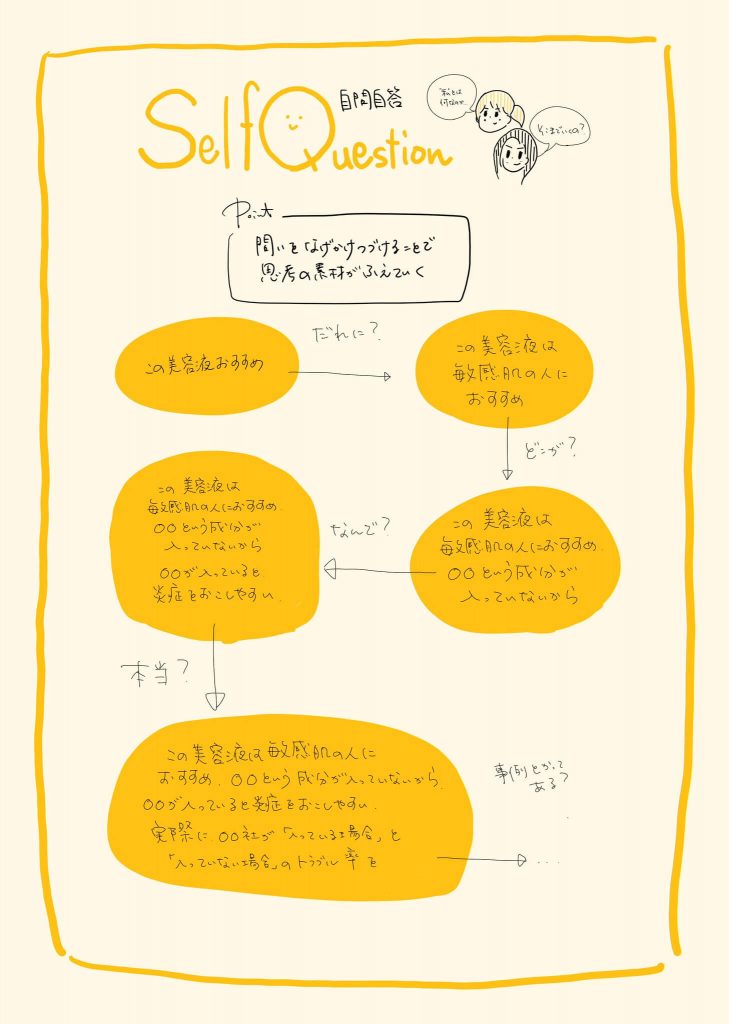 Self Question
自問自答
私とは
何なのか…
そこまでいくの?
Point
問いをなげかけつづけることで
思考の素材がふえていく
この美容液おすすめ
だれに?
この美容液は
敏感肌の人に
おすすめ
どこが?
この美容液は
敏感肌の人におすすめ.
〇〇という成分が
入っていないから
なんで?
この美容液は
敏感肌の人におすすめ.
〇〇という成分が
入っていないから
〇〇が入っていると
炎症をおこしやすい.
本当?
この美容液は敏感肌の人に
おすすめ. 〇〇という成分が入っていないから.
〇〇が入っていると炎症をおこしやすい.
実際に、〇〇社が「入っている場合」と
「入っていない場合」のトラブル率を
事例とかって
ある?
...